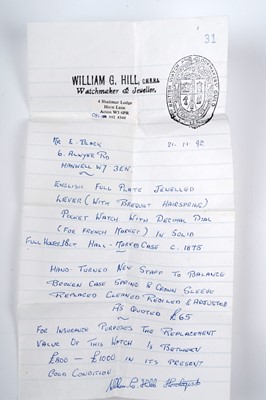 31
WILLIAM G. HILL, C.M.B.H.I.
Watchmaker & Jeweller.
4 Shalimar Lodge
Horn Lane
Acton W3 6PR
992
21.11.92
Mr E. Black
6. Alwyne Rd
Hanwell W7 3EN.
English Full Plate Jewelled
Lever (With Breguet Hairspring)
Pocket Watch With Decimal Dial
(For French Market) In Solid
Full Hunter 18ct Hall-Marked Case C. 1875
Hand Turned New Staff To Balance
Broken Case Spring & Crown Sleeve
Replaced Cleaned Reoiled & Adjusted
As Quoted £65
For Insurance Purposes The Replacement
Value Of This Watch Is Between
£800 — £1000 In Its Present
Good Condition
William G Hill